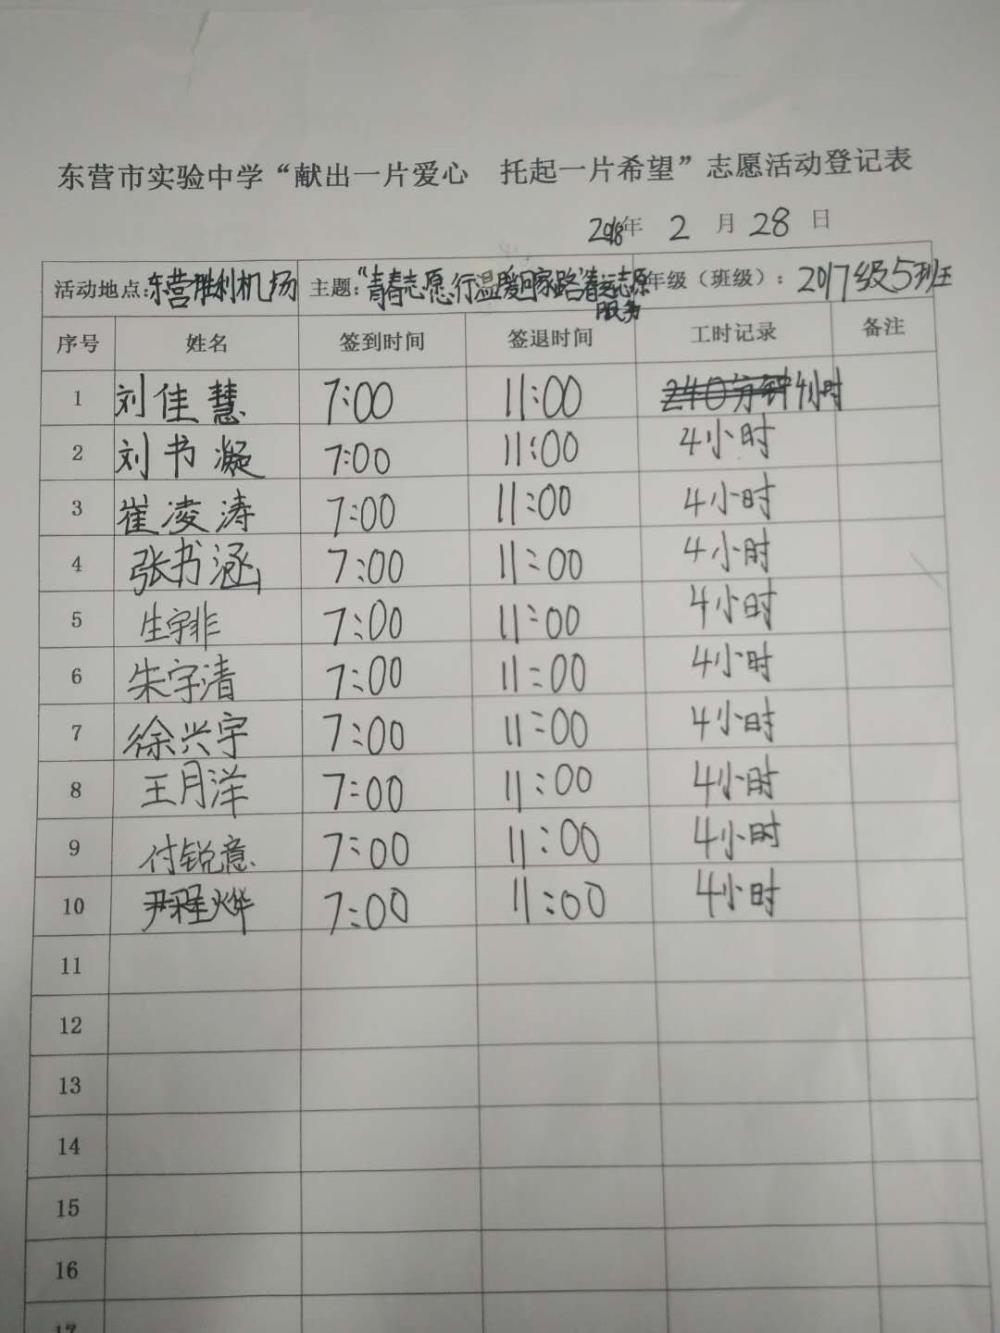 东营市实验中学“献出一片爱心 托起一片希望”志愿活动登记表
2018年 2 月 28 日
活动地点:东营胜利机场 主题:“青春志愿行温暖回家路”春运志愿服务 年级（班级）: 2017级5班
序号 姓名 签到时间 签退时间 工时记录 备注
1 刘佳慧 7:00 11:00 240分钟 4小时
2 刘书凝 7:00 11:00 4小时
3 崔凌涛 7:00 11:00 4小时
4 张书涵 7:00 11:00 4小时
5 生宇非 7:00 11:00 4小时
6 朱宇清 7:00 11:00 4小时
7 徐兴宇 7:00 11:00 4小时
8 王月洋 7:00 11:00 4小时
9 付锐意 7:00 11:00 4小时
10 尹程烨 7:00 11:00 4小时
11
12
13
14
15
16
17